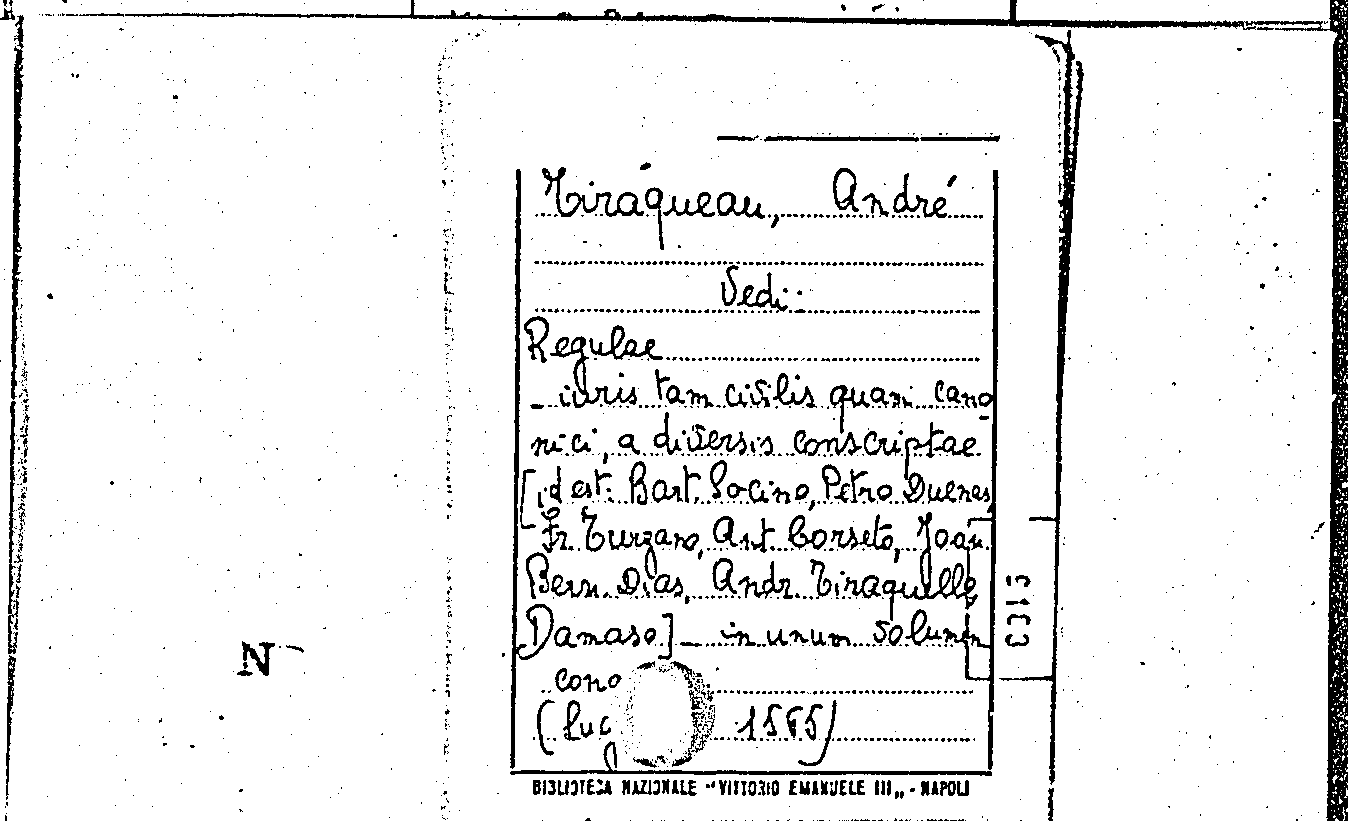 Tiraqueau, André
Vedi:
Regulae
_ iuris tam civilis quam cano
nici, a diversis conscriptae
[id est: Bart. Socino, Petro Duenas,
Fr. Turzano, Ant. Corseto, Joan
Bern. Dias, Andr. Tiraquelle,
Damaso] _ in unum volumen
(Lug 1565)
N
BIBLIOTECA NAZIONALE "VITTORIO EMANUELE III" - NAPOLI